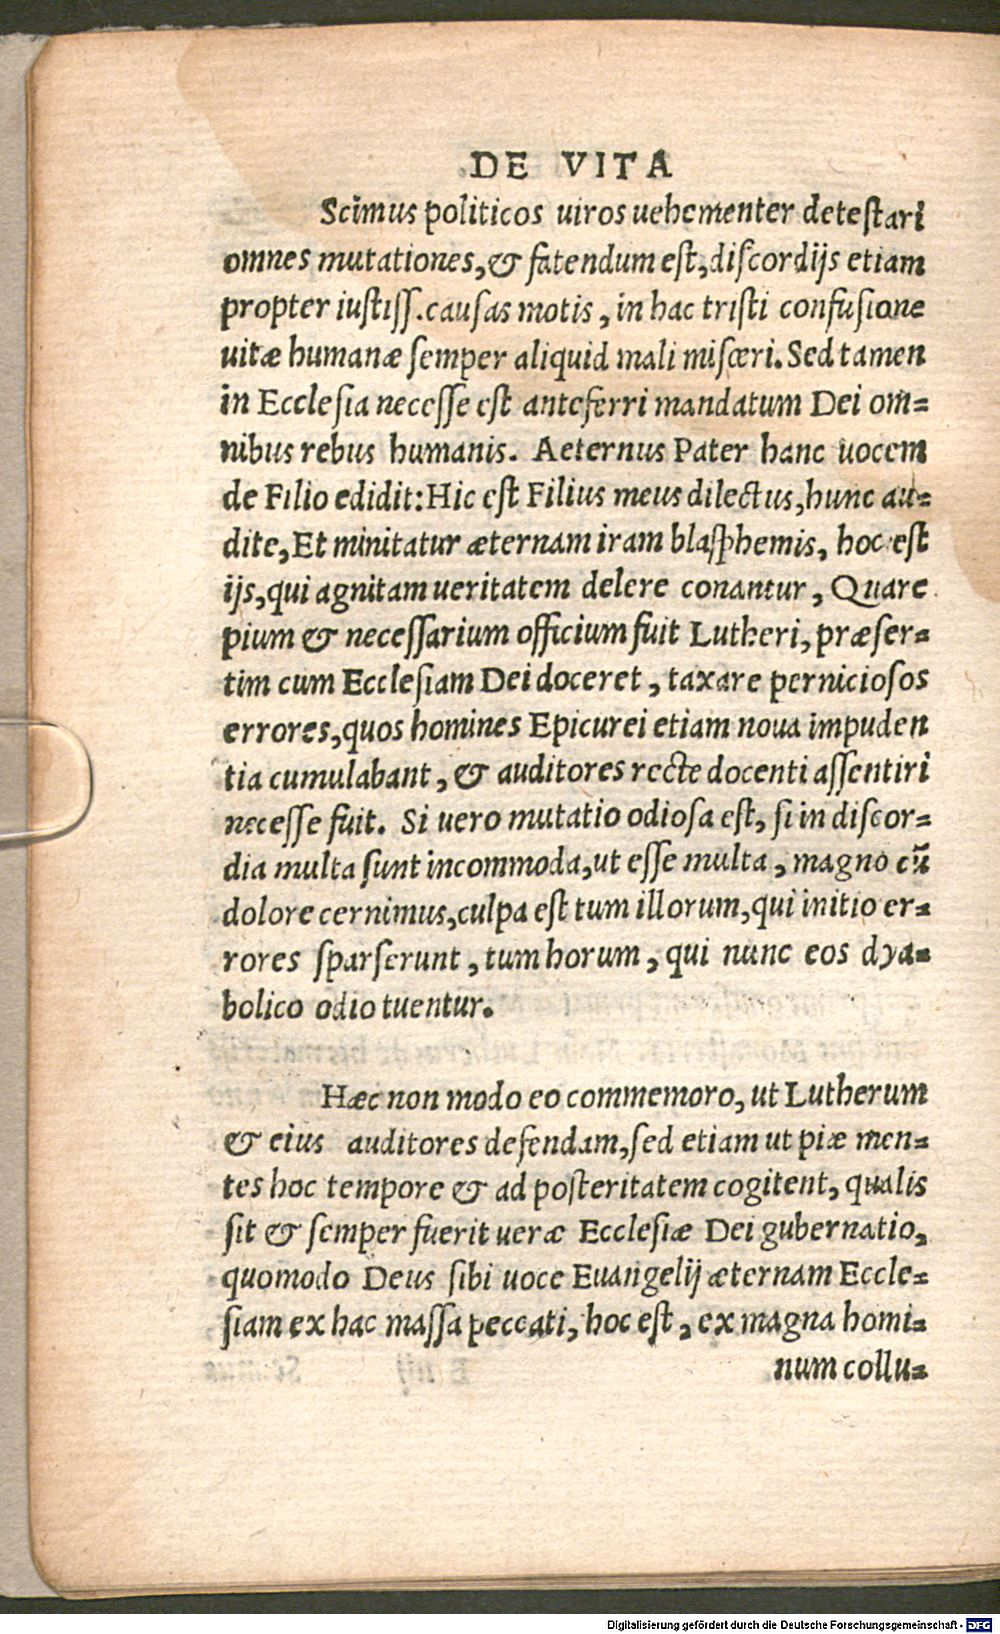 DE VITA
Scimus politicos uiros uehementer detestari
omnes mutationes, & fatendum est, discordijs etiam
propter iustiss. causas motis, in hac tristi confusione
uitæ humanæ semper aliquid mali misceri. Sed tamen
in Ecclesia necesse est anteferri mandatum Dei om=
nibus rebus humanis. Aeternus Pater hanc uocem
de Filio edidit: Hic est Filius meus dilectus, hunc au=
dite, Et minitatur æternam iram blasphemis, hoc est
ijs, qui agnitam ueritatem delere conantur, Quare
pium & necessarium officium fuit Lutheri, præser=
tim cum Ecclesiam Dei doceret, taxare perniciosos
errores, quos homines Epicurei etiam noua impuden
tia cumulabant, & auditores recte docenti assentiri
necesse fuit. Si uero mutatio odiosa est, si in discor=
dia multa sunt incommoda, ut esse multa, magno cū
dolore cernimus, culpa est tum illorum, qui initio er=
rores sparserunt, tum horum, qui nunc eos dya=
bolico odio tuentur.
Hæc non modo eo commemoro, ut Lutherum
& eius auditores defendam, sed etiam ut piæ men=
tes hoc tempore & ad posteritatem cogitent, qualis
sit & semper fuerit ueræ Ecclesiæ Dei gubernatio,
quomodo Deus sibi uoce Euangelij æternam Eccle=
siam ex hac massa peccati, hoc est, ex magna homi=
num collu=
Digitalisierung gefördert durch die Deutsche Forschungsgemeinschaft - DFG